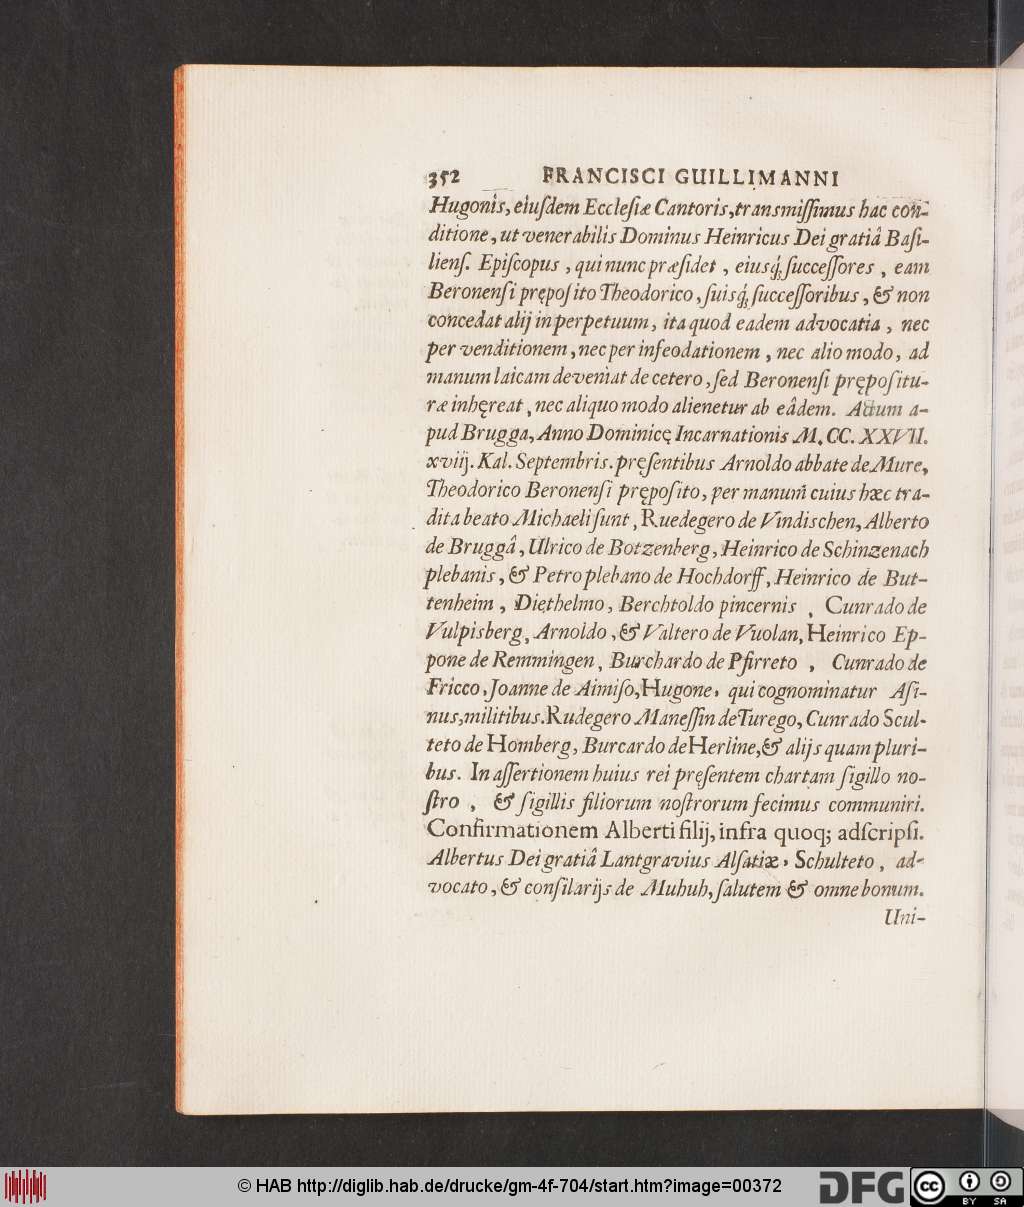 352 FRANCISCI GUILLIMANNI
Hugonis, eiuſdem Eccleſiæ Cantoris, transmiſſimus hac con-
ditione, ut venerabilis Dominus Heinricus Dei gratiâ Baſi-
lienſ. Epiſcopus, qui nunc præſidet, eiusq́; ſucceſſores, eam
Beronenſi prępoſito Theodorico, ſuisq́; ſucceſſoribus, & non
concedat alij in perpetuum, ita quod eadem advocatia, nec
per venditionem, nec per infeodationem, nec alio modo, ad
manum laicam deveniat de cetero, ſed Beronenſi prępoſitu-
ræ inhęreat, nec aliquo modo alienetur ab eâdem. Actum a-
pud Brugga, Anno Dominicę Incarnationis M. CC. XXVII.
xviij. Kal. Septembris. pręſentibus Arnoldo abbate de Mure,
Theodorico Beronenſi prępoſito, per manum cuius hæc tra-
dita beato Michaeli ſunt, Ruedegero de Vindischen, Alberto
de Bruggâ, Ulrico de Botzenberg, Heinrico de Schinzenach
plebanis, & Petro plebano de Hochdorff, Heinrico de But-
tenheim, Diethelmo, Berchtoldo pincernis, Cunrado de
Vulpisberg, Arnoldo, & Valtero de Vuolan, Heinrico Ep-
pone de Remmingen, Burchardo de Pfirreto, Cunrado de
Fricco, Joanne de Aimiſo, Hugone, qui cognominatur Aſi-
nus, militibus. Rudegero Maneſſin de Turego, Cunrado Scul-
teto de Homberg, Burcardo de Herline, & alijs quam pluri-
bus. In aſſertionem huius rei pręſentem chartam ſigillo no-
ſtro, & ſigillis filiorum noſtrorum fecimus communiri.
Confirmationem Alberti filij, infra quoq; adſcripſi.
Albertus Dei gratiâ Lantgravius Alſatiæ, Schulteto, ad-
vocato, & conſilarijs de Muhuh, ſalutem & omne bonum.
Uni-
© HAB http://diglib.hab.de/drucke/gm-4f-704/start.htm?image=00372
DFG
cc BY SA